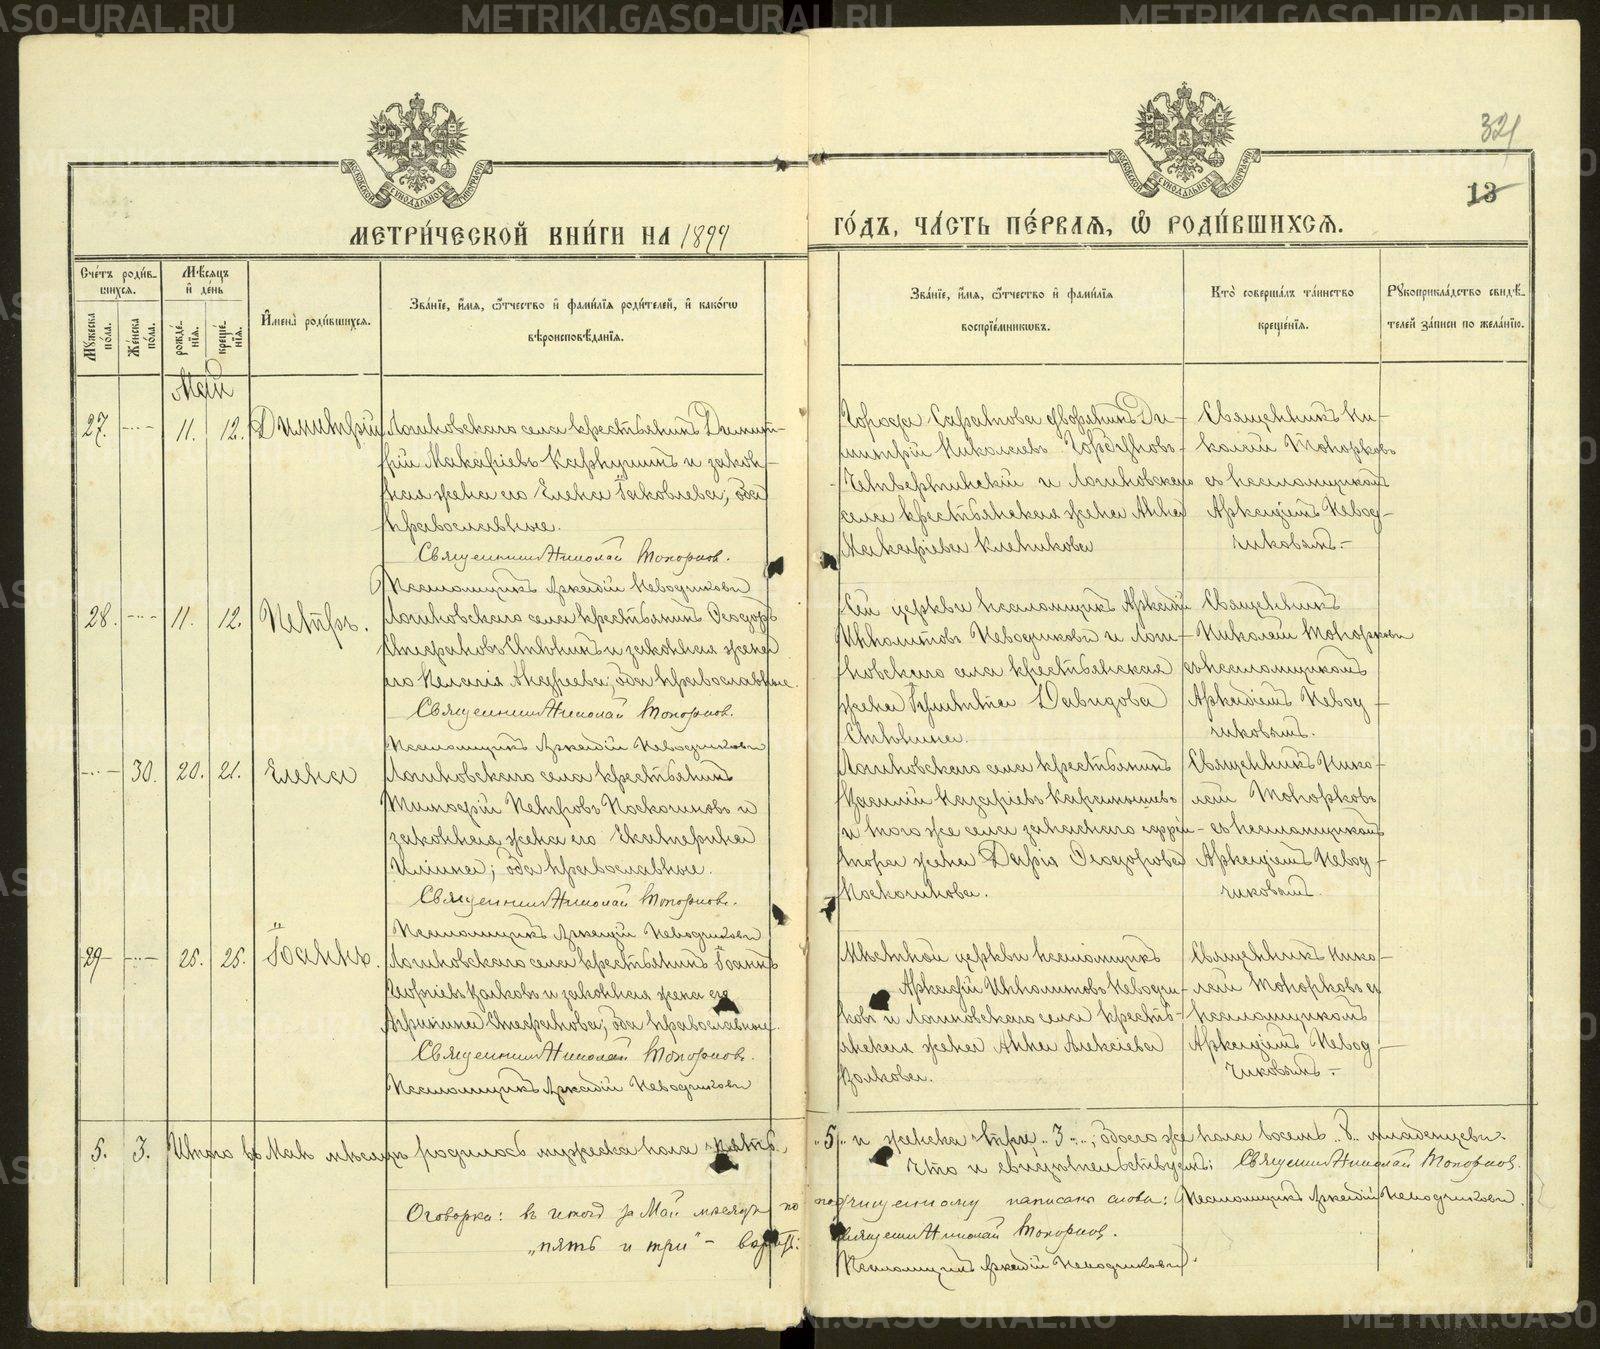 МЕТРИ́ЧЕСКОЙ КНИ́ГИ НА 1899
ГО́ДЪ, ЧА́СТЬ ПЕ́РВАЯ, Ѿ РОДИ́ВШИХСЯ.
32
13
Сче́тъ роди́в-
шихся.
Мꙋ́жеска по́ла.
Же́нска по́ла.
Мѣ́сяцъ и́ де́нь
рожде́нїя.
креще́нїя.
И҆мена̀ роди́вшихся.
Зва́нїе, и҆́мя, ѻ҆́тчество и҆ фами́лїя роди́телей, и҆ како́гѡ
вѣроисповѣ́данїя.
Зва́нїе, и҆́мя, ѻ҆́тчество и҆ фами́лїя
воспрїе́мникѡвъ.
Кто̀ соверша́лъ та́инство
креще́нїя.
Рꙋкоприкла́дство свидѣ́-
телей за́писи по жела́нїю.
Май
27. 11. 12. Димитрій
Логиновскаго села крестьянинъ Димит-
рій Макаріевъ Карпушинъ и закон-
ная жена его Елена Іаковлева, оба
православные.
Священникъ Николай Топорковъ.
Псаломщикъ Аркадій Неводчиковъ
Города Саратова дворянинъ Ди-
митрій Николаевъ
Четвертинскій и Логиновскаго
села крестьянская жена Анна
Макаріева Клепикова
Священникъ Ни-
колай Топорковъ
съ псаломщикомъ
Аркадіемъ Невод-
чиковымъ.
28. 11. 12. Петръ.
Логиновскаго села крестьянинъ Ѳеодоръ
Стефановъ и законная жена
его Пелагія Андреева, оба православные.
Священникъ Николай Топорковъ.
Псаломщикъ Аркадій Неводчиковъ
Сей церкви псаломщикъ Аркадій
Ипполитовъ Неводчиковъ и Логи-
новскаго села крестьянская
жена Давидова
Священникъ
Николай Топорковъ
съ псаломщикомъ
Аркадіемъ Невод-
чиковымъ.
30. 20. 21. Елена
Логиновскаго села крестьянинъ
Тимофій Петровъ Поскотиновъ и
законная жена его Екатерина
Ильина; оба православные.
Священникъ Николай Топорковъ.
Псаломщикъ Аркадій Неводчиковъ
Логиновскаго села крестьянинъ
Василій Назаріевъ
и того же села запаснаго
жена Дарія Ѳеодорова
Поскотинова.
Священникъ Нико-
лай Топорковъ
съ псаломщикомъ
Аркадіемъ Невод-
чиковымъ
29 25. 25. Іоаннъ.
Логиновскаго села крестьянинъ Іоаннъ
Георгіевъ Волковъ и законная жена его
Агрипина Стефанова; оба православные.
Священникъ Николай Топорковъ.
Псаломщикъ Аркадій Неводчиковъ
Мѣстной церкви псаломщикъ
Аркадій Ипполитовъ Неводчи-
ковъ и Логиновскаго села кресть-
янская жена Анна Алексіева
Волкова.
Священникъ Нико-
лай Топорковъ съ
псаломщикомъ
Аркадіемъ Невод-
чиковымъ.
5. 3. Итого въ Маѣ мѣсяцѣ родилось мужеска пола пять
„5„ и женска три „3„; обоего же пола восемь „8„ младенцевъ.
Что и свидѣтельствуемъ: Священникъ Николай Топорковъ.
Псаломщикъ Аркадій Неводчиковъ.
Оговорка: въ итогѣ за Май мѣсяцъ по подчищенному написаны слова:
„пять и три“ –
Священникъ Николай Топорковъ.
Псаломщикъ Аркадій Неводчиковъ.
METRIKI.GASO-URAL.RU